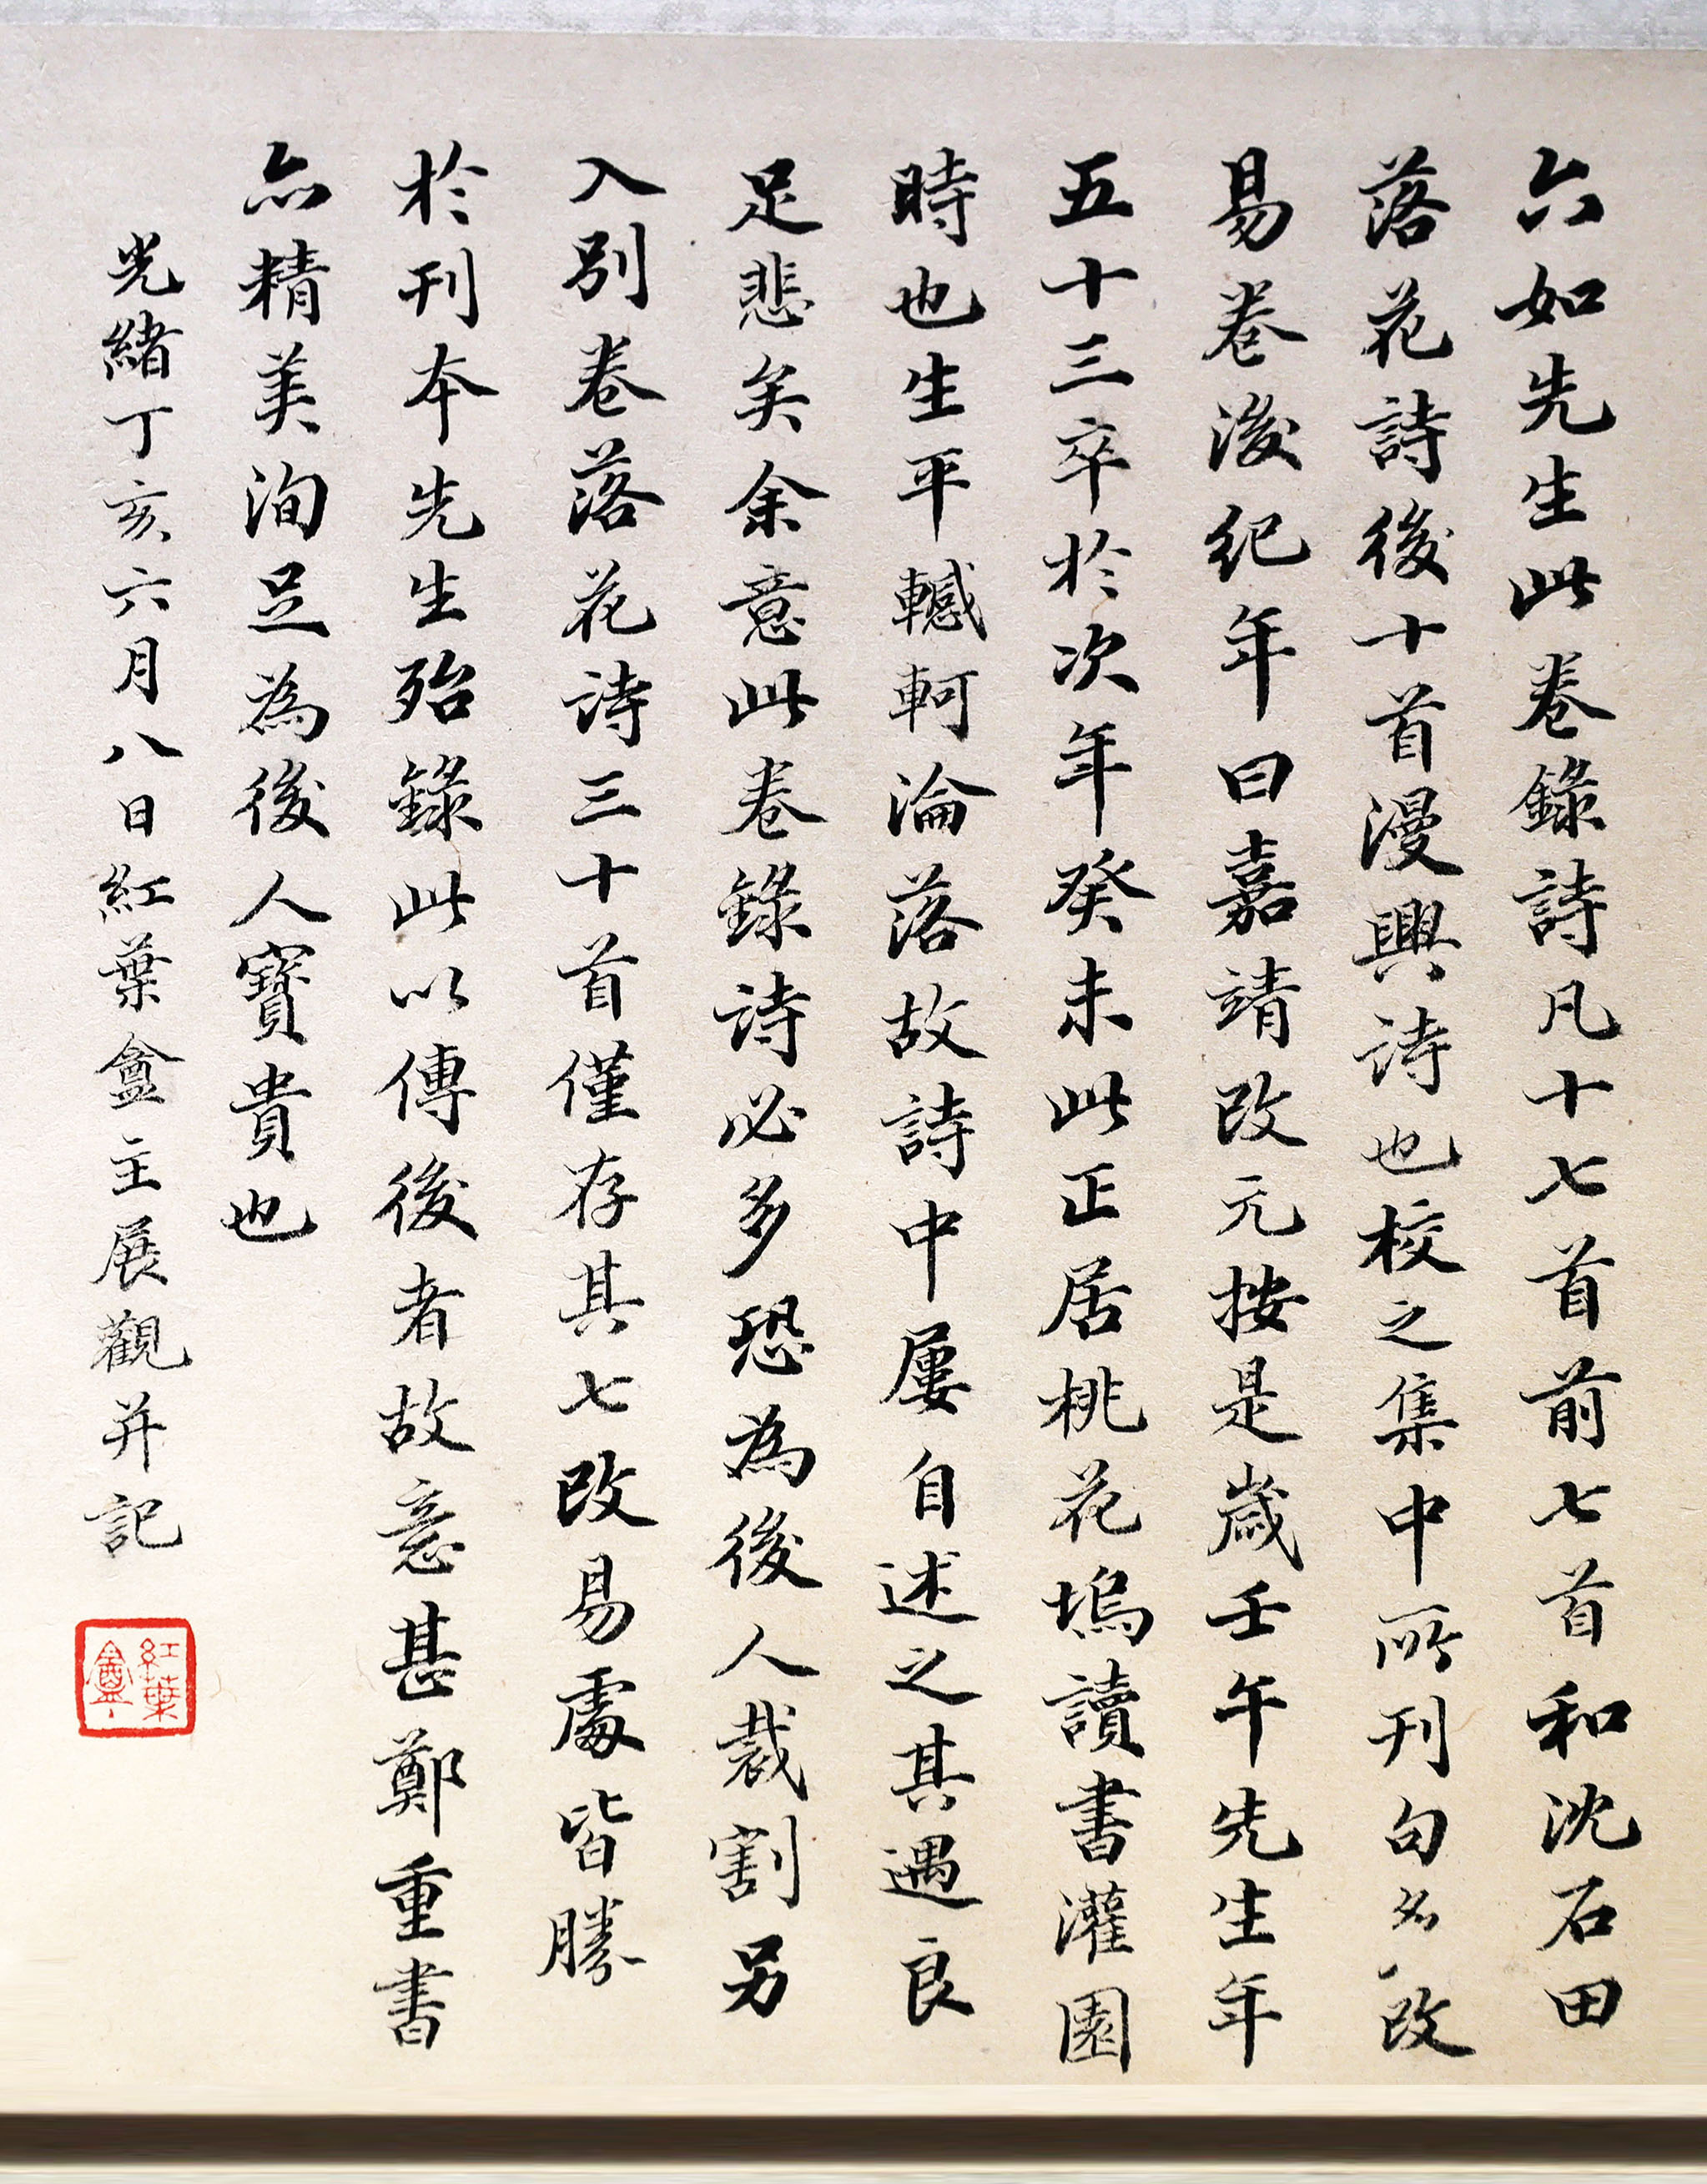 六如先生此卷錄詩凡十七首前七首和沈石田
落花詩後十首漫興詩也校之集中所刊句多改
易卷後紀年曰嘉靖改元按是歲壬午先生年
五十三卒於次年癸未此正居桃花塢讀書灌園
時也生平轗軻淪落故詩中屢自述之其遇良
足悲矣余意此卷錄詩必多恐為後人裁割另
入別卷落花詩三十首僅存其七改易處皆勝
於刊本先生殆錄此以傳後者故意甚鄭重書
亦精美洵足為後人寶貴也
光緒丁亥六月八日紅葉盦主展觀并記
紅葉盦